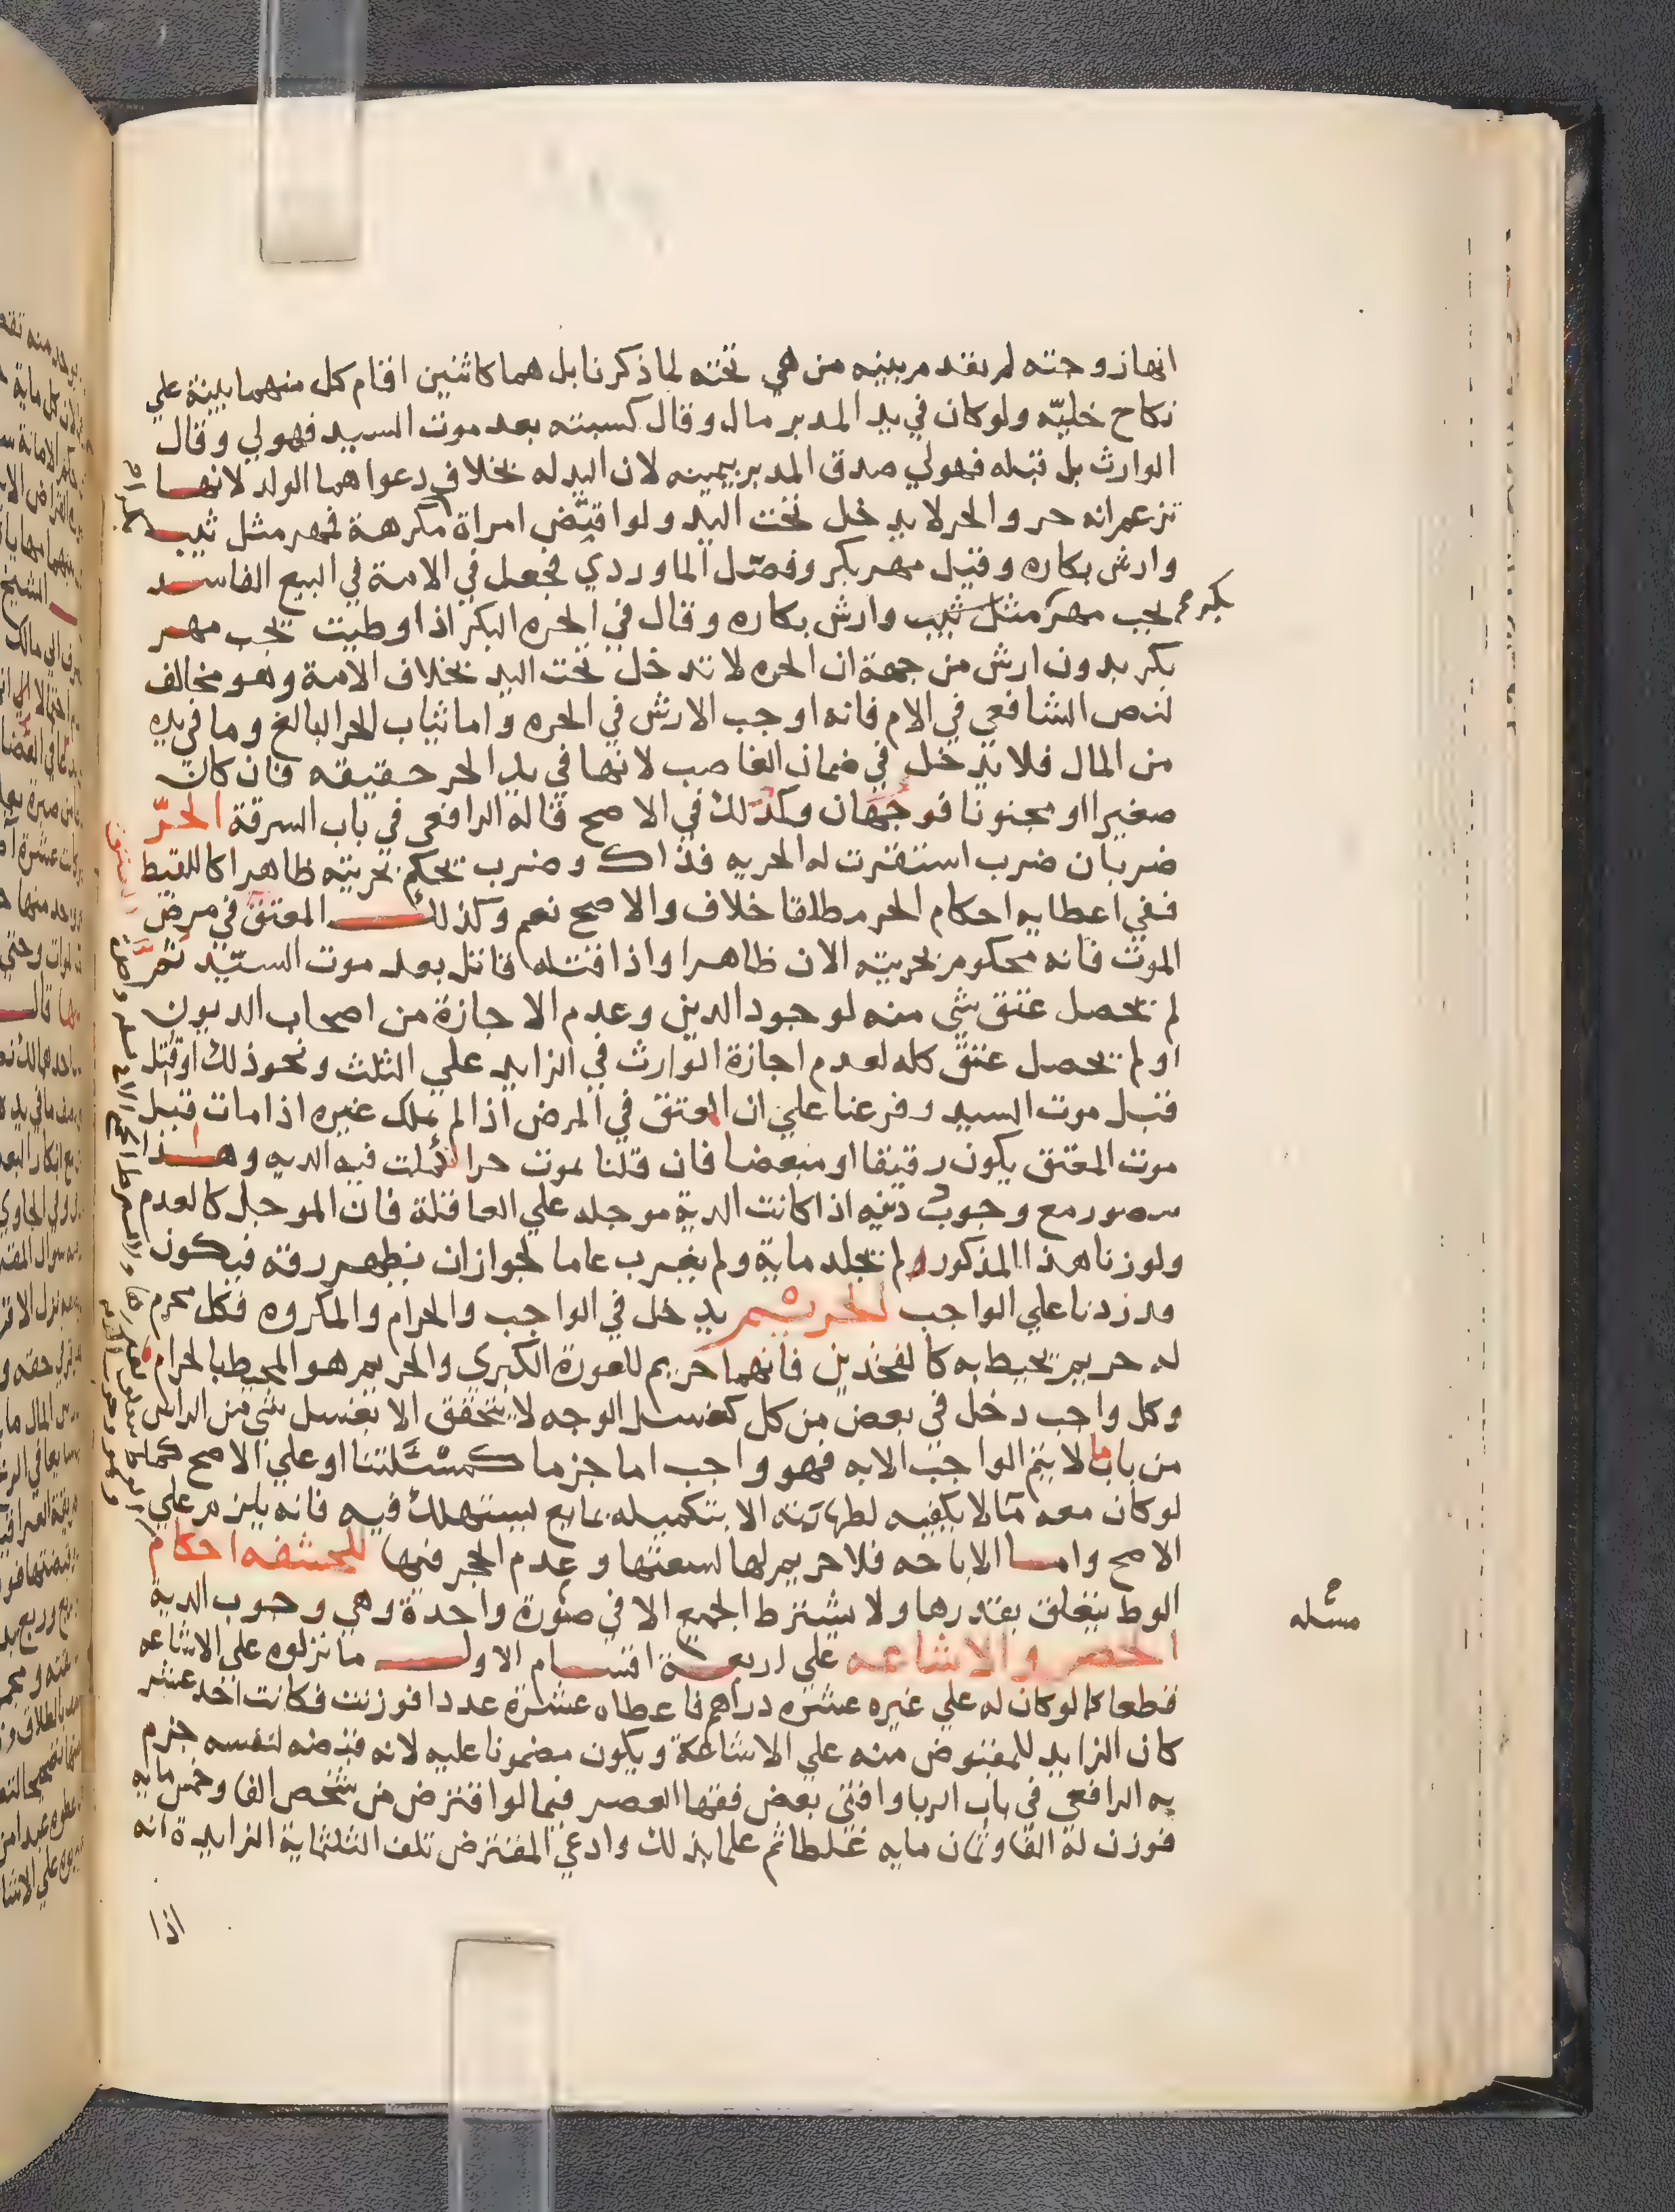 انها زوجته لم يقدم ببينه من هي تحته لما ذكرنا بل هما كاثنين اقام كل منهما بينة علي
نكاح خليّه ولو كان في يد المدبر مال وقال كسبته بعد موت السيد فهو لي وقال
الوارث بل قبله فهو لي صدق المدبر بيمينه لان اليد له بخلاف دعواهما الولد لانها
تزعم انه حر والحر لا يدخل تحت اليد ولو اقتض امراة مكرهة فمهر مثل ثيب
وارش بكاره وقيل مهر بكر وفصّل الماوردي فجعل في الامة في البيع الفاسد
يجب مهر مثل ثيب وارش بكاره وقال في الحره البكر اذا وطيت يجب مهر
بكر
بكر بدون ارش من جهة ان الحره لا تدخل تحت اليد بخلاف الامة وهو مخالف
لنص الشافعي في الام فانه اوجب الارش في الحره واما ثياب الحر البالغ وما في يده
من المال فلا يدخل في ضمان الغاصب لانها في يد الحر حقيقه فان كان
صغيرا او مجنونا فوجهان وكذلك في الاصح قاله الرافعي في باب السرقة الحرّ
ضربان ضرب استقرت له الحريه فذاك وضرب يحكم بحريته ظاهرا كاللقيط
ففي اعطايه احكام الحر مطلقا خلاف والاصح نعم وكذلك المعتق في مرض
الموت فانه محكوم بحريته الان ظاهرا واذا قتله قاتل بعد موت السيّد ثم
لم يحصل عتق شي منه لوجود الدين وعدم الاجازة من اصحاب الديون
او لم يحصل عتق كله لعدم اجازة الوارث في الزايد علي الثلث ونحو ذلك او قتل
قبل موت السيد وفرعنا علي ان المعتق في المرض اذا لم يملك غيره اذا مات قبل
موت المعتق يكون رقيقا او مبعضا فان قلنا يموت حرا كملت فيه الديه وهذا
متصور مع وجوب دينه اذا كانت الدية موجله علي العاقلة فان الموجل كالعدم
ولو زنا هذا المذكور ولم يجلد ماية ولم يغرب عاما لجواز ان يظهر رقه فيكون
قد زدنا علي الواجب الحريم يدخل في الواجب والحرام والمكروه فكل محرم
له حريم يحيط به كالفخذين فانهما حريم للعورة الكبري والحريم هو المحيط بالحرام
وكل واجب دخل في بعض من كل كغسل الوجه لا يتحقق الا بغسل شي من الراس
من باب ما لا يتم الواجب الا به فهو واجب اما جزما كمسئلتنا او علي الاصح كما
لو كان معه ما لا يكفيه لطهارته الا بتكميله بمايع يستهلك فيه فانه يلزم علي
الاصح واما الاباحه فلا حريم لها لسعتها وعدم الحجر فيها للحشفه احكام
الوط يتعلق بقدرها ولا يشترط الجميع الا في صورة واحدة وهي وجوب الدية
مسئله
الحصر والاشاعه علي اربعة اقسام الاول ما نزلوه علي الاشاعه
قطعا كما لو كان له علي غيره عشره دراهم فاعطاه عشرة عددا فوزنت فكانت احد عشر
كان الزايد للمقبوض منه علي الاشاعة ويكون مضمونا عليه لانه قبضه لنفسه جزم
به الرافعي في باب الربا وافتي بعض فقها العصر فيما لو اقترض من شخص الفا وخمس مايه
فوزن له الفا وثمان مايه غلطا ثم علما بذلك وادعي المقترض تلف الثلثماية الزايدة انه
اذا